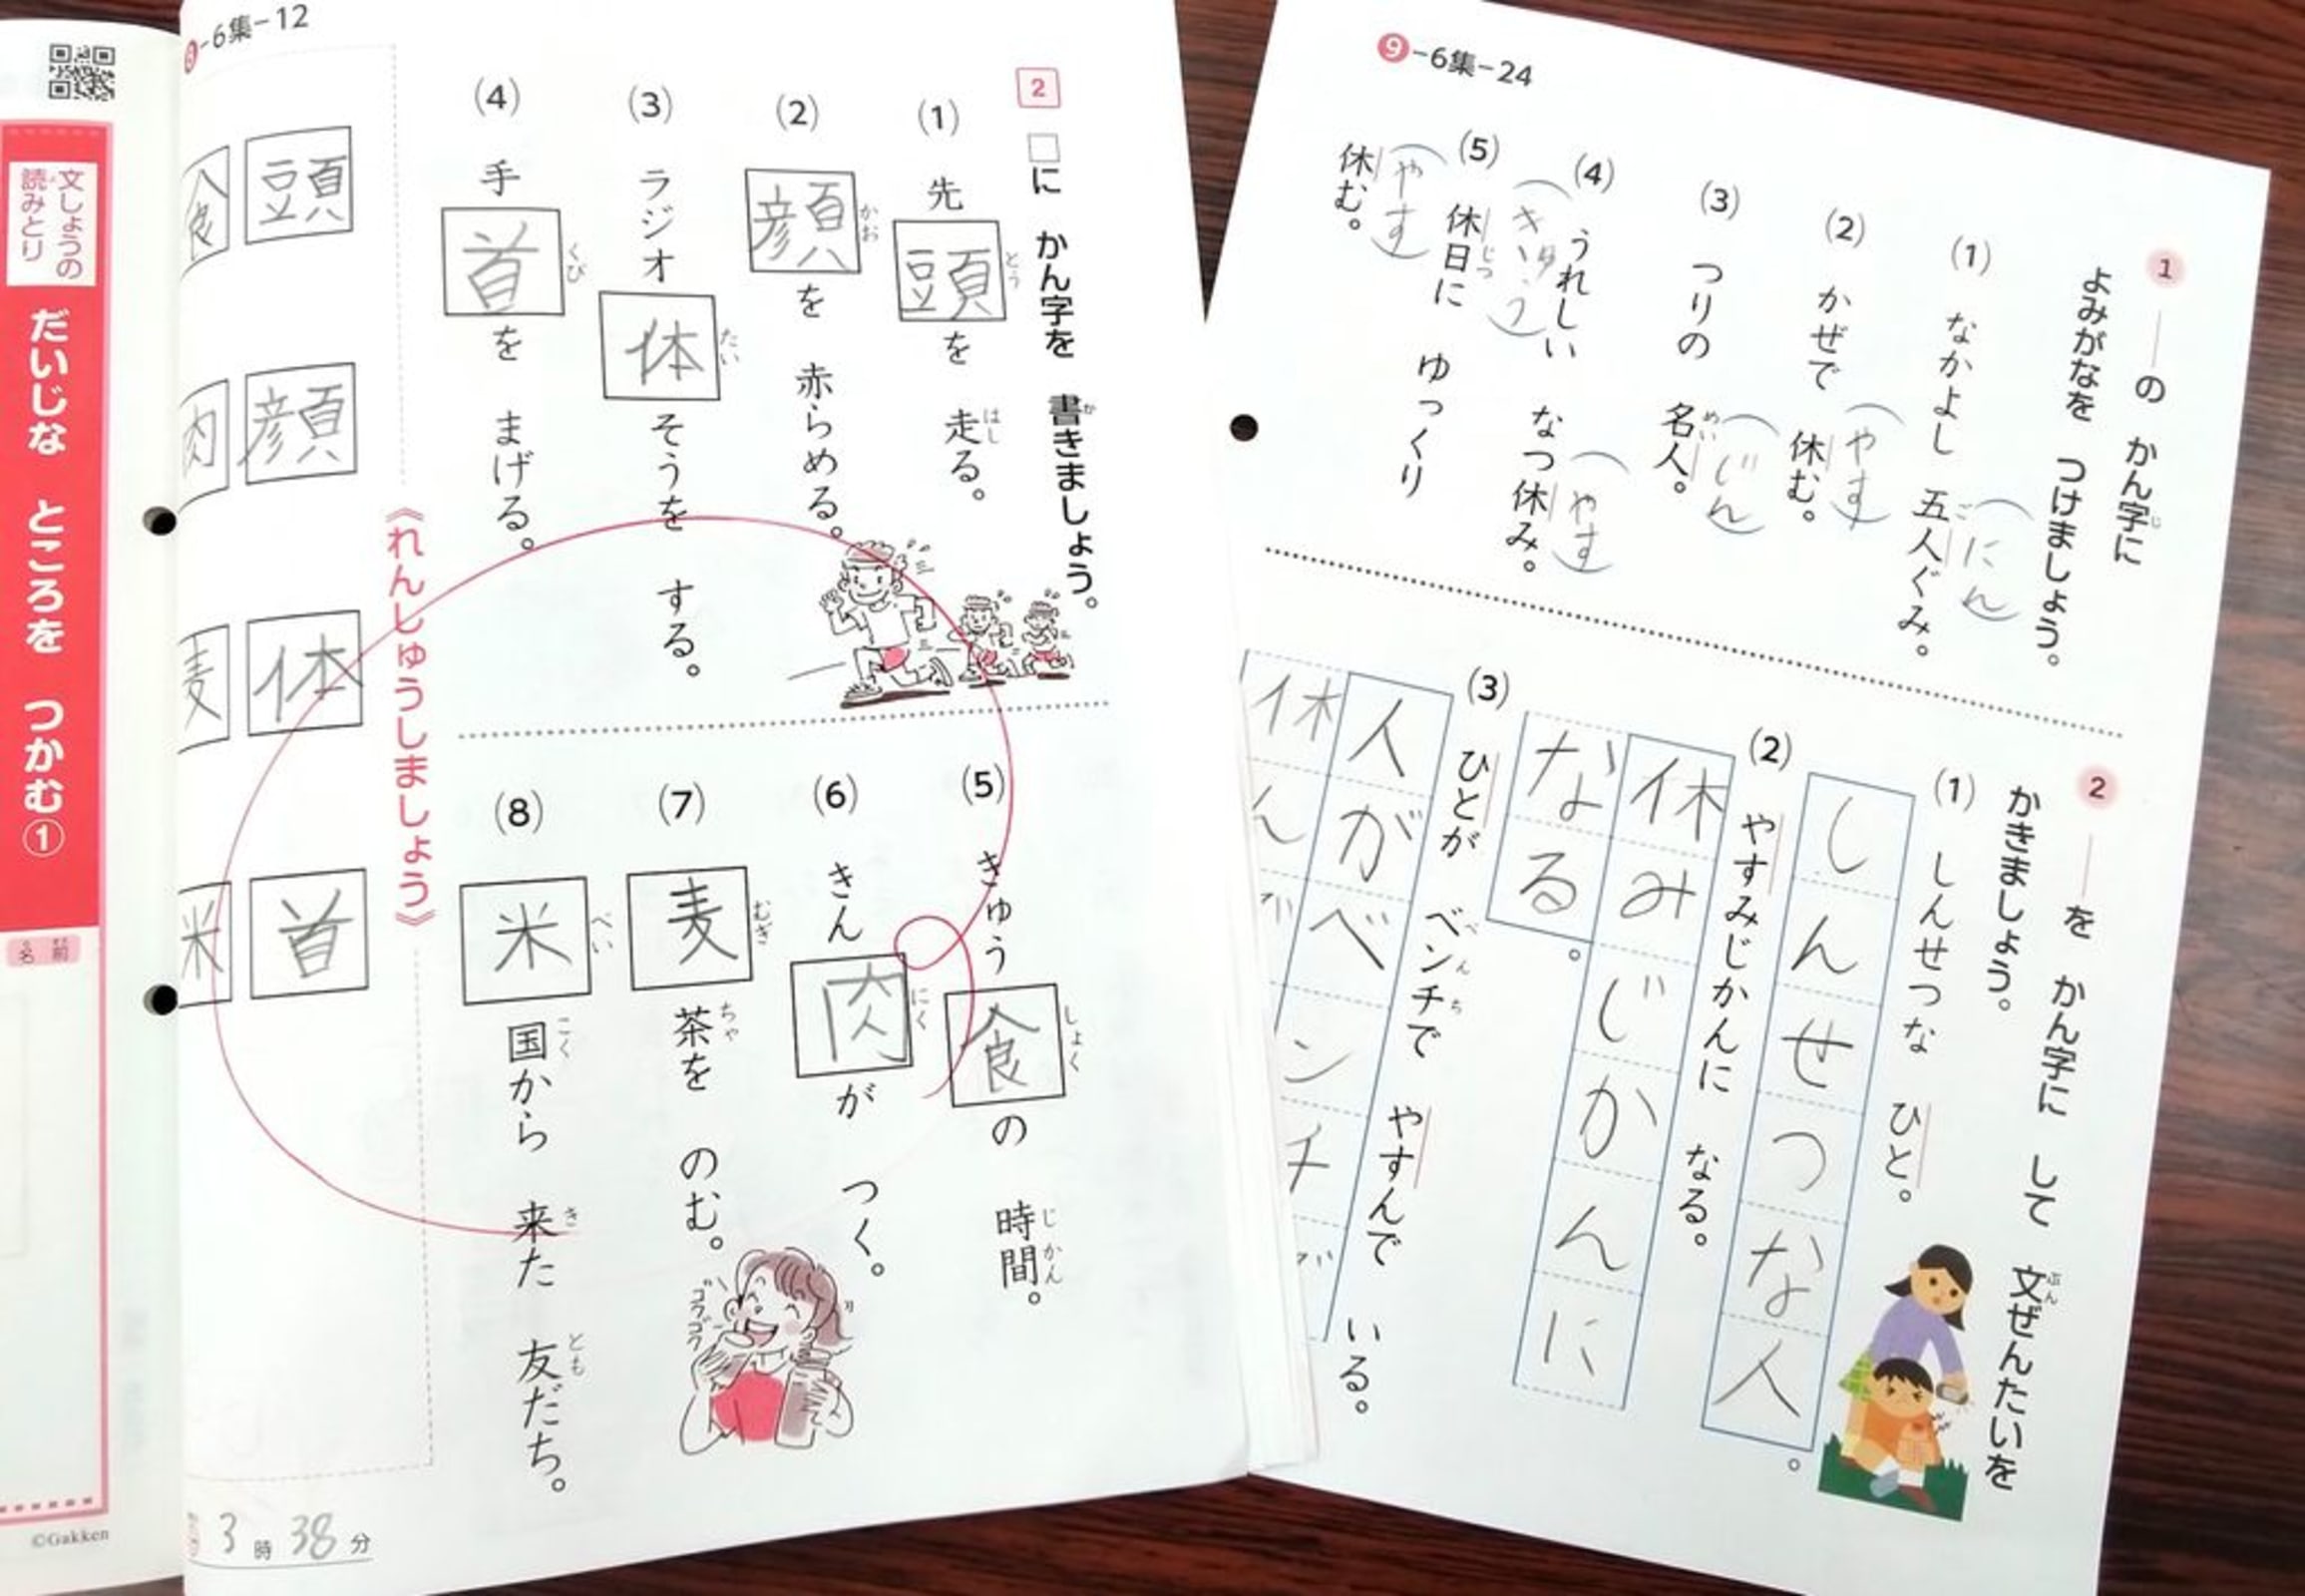 9-6集-24
1 ――の かん字に
よみがなを つけましょう。
(1) なかよし 五人ぐみ。
ご
にん
(2) かぜで 休む。
やす
(3) つりの 名人。
めい
じん
(4) うれしい なつ休み。
やす
(5) 休日に ゆっくり
きゅう
じつ
休む。
やす
2 ――を かん字に して 文ぜんたいを
かきましょう。
(1) しんせつな ひと。
しんせつな人
。
(2) やすみじかんに なる。
休みじかんに
なる
。
(3) ひとが ベンチで やすんで いる。
人がベンチ
休んで
-6集-12
2 □に かん字を 書きましょう。
(1) 先頭を 走る。
とう
はし
(2) 顔を 赤らめる。
かお
(3) ラジオ体そうを する。
たい
(4) 手首を まげる。
くび
(5) きゅう食の 時間。
しょく
じかん
(6) きん肉が つく。
にく
(7) 麦茶を のむ。
むぎ
ちゃ
ゴクゴク
(8) 米国から 来た 友だち。
べい
こく
き
とも
《れんしゅうしましょう》
頭 顔 体 首
食 肉 麦 米
3時38分
文しょうの
読みとり
だいじな ところを つかむ①
名前
©Gakken